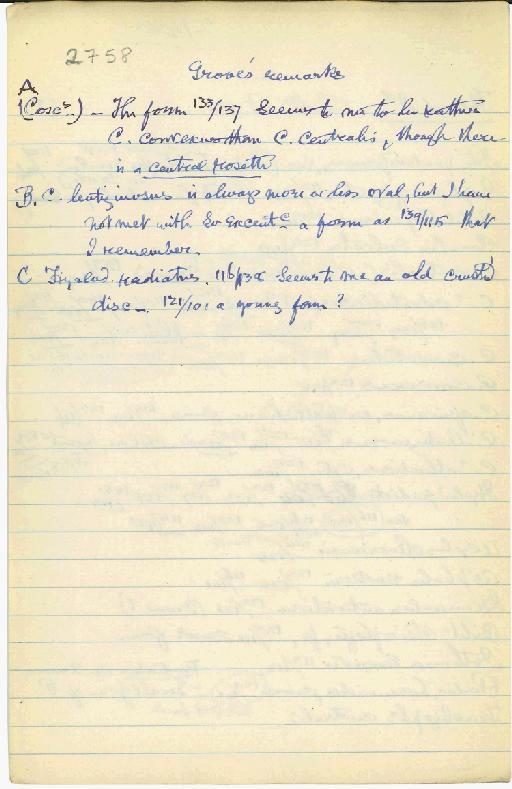 2758
Grove's remarks
A
(Cosc^s.) – The form 133/137 seems to me to be rather
C. convexus than C. centralis, though there
is a central rosette
B. C. lentiginosus is always more or less oval, but I have
not met with so excent^c a form as 139/115 that
I remember.
C radiatus. 116/138 seems to me an old crushed
disc –. 121/101 a young form?